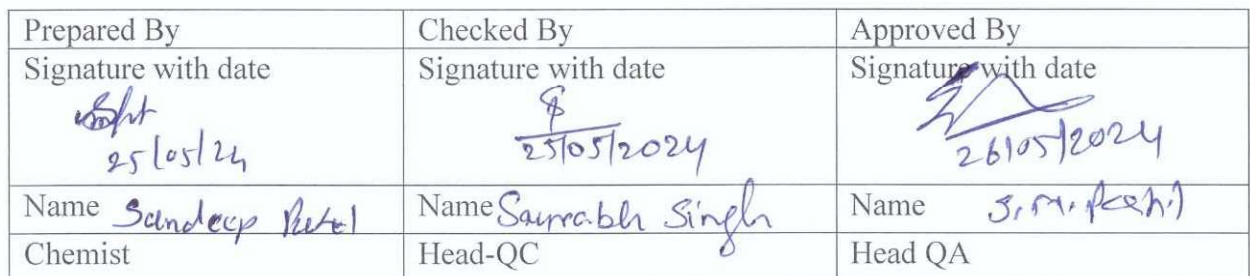 Prepared By Checked By Approved By
Signature with date Signature with date Signature with date
25/05/24 25/05/2024 26/05/2024
Name Sandeep Patel Name Saurabh Singh Name S.M.
Chemist Head-QC Head QA